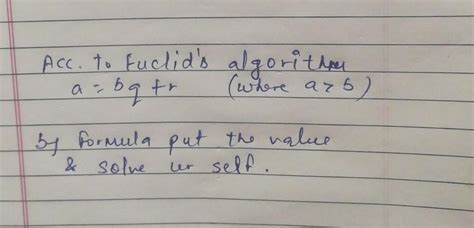 Acc. to Euclid's algorithm
a = bq + r (where a > b)
by formula put the value
& solve ur self.